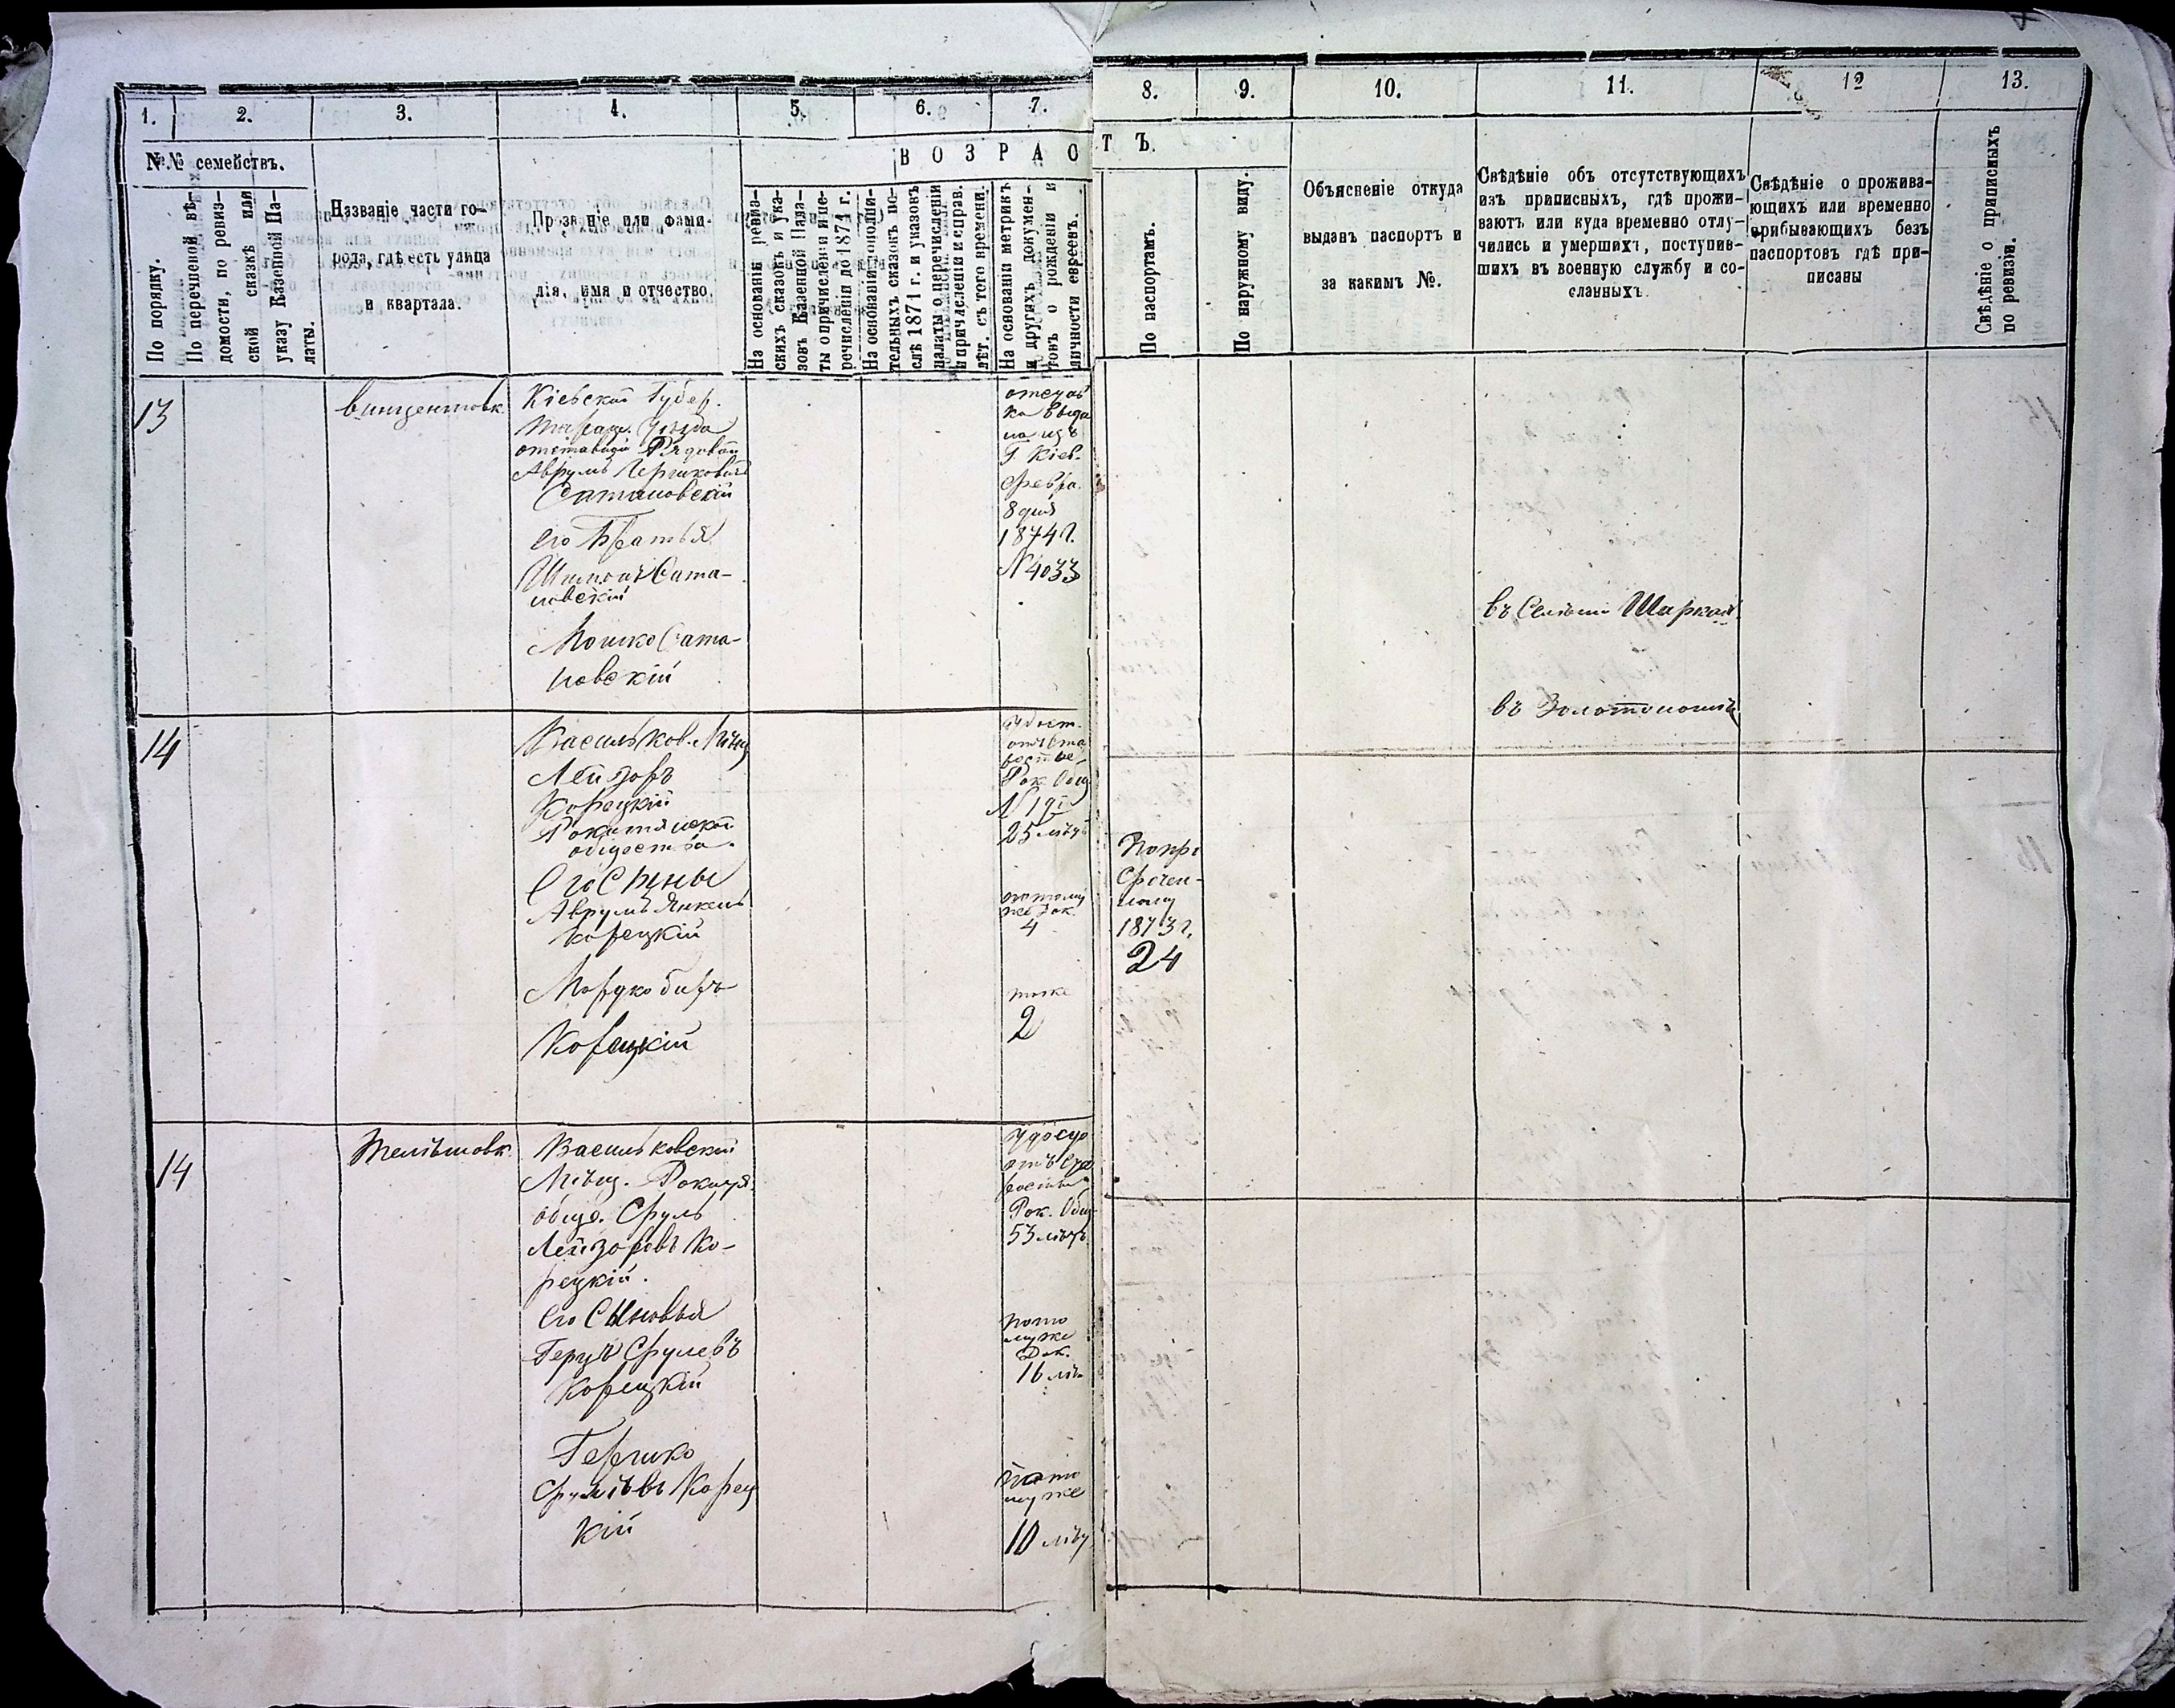 1. 2. 3. 4. 5. 6. 7. 8. 9. 10. 11. 12 13.
№№ семействъ.
В О З Р А С Т Ъ.
По порядку.
По перечневой вѣ-
домости, по ревиз-
ской сказкѣ или
указу Казенной Па-
латы.
Названіе части го-
рода, гдѣ есть улица
и квартала.
Прозваніе или фами-
лія, имя и отчество.
На основаніи ревиз-
скихъ сказокъ и ука-
зовъ Казенной Пала-
ты о причисленіи и пе-
речисленіи до 1871 г.
На основаніи дополни-
тельныхъ сказокъ по-
слѣ 1871 г. и указовъ
палаты о перечисленіи
и причисленіи и справ.
лѣт. съ того времени.
На основаніи метрикъ
и другихъ докумен-
товъ о рожденіи и
личности евреевъ.
По паспортамъ.
По наружному виду.
Объясненіе откуда
выданъ паспортъ и
за какимъ №.
Свѣдѣніе объ отсутствующихъ
изъ приписныхъ, гдѣ прожи-
ваютъ или куда временно отлу-
чились и умершихъ, поступив-
шихъ въ военную службу и со-
сланныхъ.
Свѣдѣніе о прожива-
ющихъ или временно
прибывающихъ безъ
паспортовъ гдѣ при-
писаны
Свѣдѣніе о приписныхъ
по ревизіи.
13
Винцентовк.
Кіевской Губер.
Тараще. Уѣзда
отставной Рядовой
Аврумъ Гершковичъ
Сатановскій
его Братья
Шимонъ Сата-
новскій
Мошко Сата-
новскій
Г. Кіев.
Февра.
8 дня
1874 г.
№ 4033
въ Золотоноши
14
Васильков. Мѣщ
Лейзоръ
Корецкій
Рокитянскаго
общества.
Его Сыны
Аврумъ Янкель
Корецкій
Мордко Беръ
Корецкій
Рок. Общ
25 лѣтъ
потому
же Док.
4
тоже
2
Попро
Срочен-
ному
1873 г.
24
14
Телѣшовк.
Васильковскій
Мѣщ. Рокитя.
обще. Сруль
Лейзоровъ Ко-
рецкій.
его Сыновья
Герцъ Срулевъ
Корецкій
Гершко
Срулевъ Корец
кій
Рок. Общ
53 лѣтъ
пото
муже
Док.
16 лѣ
пото
муже
10 лѣт